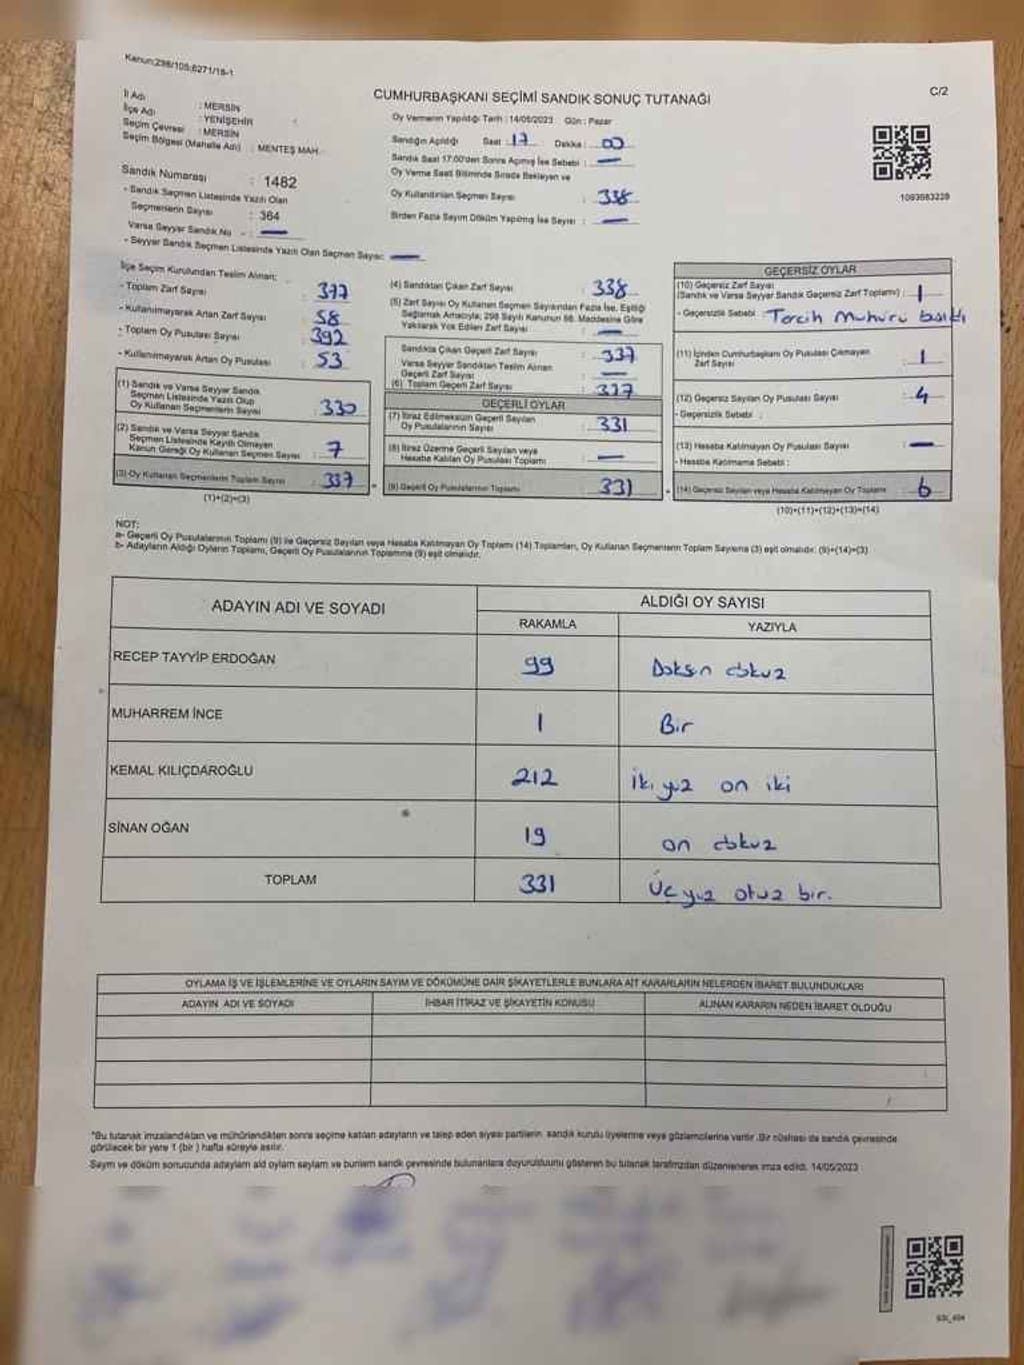 Kanun:298/105;6271/18-1
C/2
CUMHURBAŞKANI SEÇİMİ SANDIK SONUÇ TUTANAĞI
İl Adı : MERSİN
İlçe Adı : YENİŞEHİR
Seçim Çevresi : MERSİN
Seçim Bölgesi (Mahalle Adı) : MENTEŞ MAH.
Oy Vermenin Yapıldığı Tarih : 14/05/2023 Gün : Pazar
Sandığın Açıldığı Saat : 17 Dakika : 00
Sandık Saat 17:00'den Sonra Açılmış İse Sebebi : —
Oy Verme Saati Bitiminde Sırada Bekleyen ve
Oy Kullandırılan Seçmen Sayısı : 338
Birden Fazla Sayım Döküm Yapılmış İse Sayısı : —
1093683228
Sandık Numarası : 1482
- Sandık Seçmen Listesinde Yazılı Olan
Seçmenlerin Sayısı : 364
Varsa Seyyar Sandık No - : —
- Seyyar Sandık Seçmen Listesinde Yazılı Olan Seçmen Sayısı: —
İlçe Seçim Kurulundan Teslim Alınan:
- Toplam Zarf Sayısı : 377
- Kullanılmayarak Artan Zarf Sayısı : 58
- Toplam Oy Pusulası Sayısı : 392
- Kullanılmayarak Artan Oy Pusulası : 53
(1) Sandık ve Varsa Seyyar Sandık
Seçmen Listesinde Yazılı Olup
Oy Kullanan Seçmenlerin Sayısı : 330
(2) Sandık ve Varsa Seyyar Sandık
Seçmen Listesinde Kayıtlı Olmayan
Kanun Gereği Oy Kullanan Seçmen Sayısı : 7
(3) Oy Kullanan Seçmenlerin Toplam Sayısı : 337
(1)+(2)=(3)
(4) Sandıktan Çıkan Zarf Sayısı : 338
(5) Zarf Sayısı Oy Kullanan Seçmen Sayısından Fazla İse, Eşitliği
Sağlamak Amacıyla; 298 Sayılı Kanunun 98. Maddesine Göre
Yakılarak Yok Edilen Zarf Sayısı : —
Sandıkta Çıkan Geçerli Zarf Sayısı : 337
Varsa Seyyar Sandıktan Teslim Alınan
Geçerli Zarf Sayısı : —
(6) Toplam Geçerli Zarf Sayısı : 337
GEÇERLİ OYLAR
(7) İtiraz Edilmeksizin Geçerli Sayılan
Oy Pusulalarının Sayısı : 331
(8) İtiraz Üzerine Geçerli Sayılan veya
Hesaba Katılan Oy Pusulası Toplamı : —
(9) Geçerli Oy Pusulalarının Toplamı : 331
GEÇERSİZ OYLAR
(10) Geçersiz Zarf Sayısı
(Sandık ve Varsa Seyyar Sandık Geçersiz Zarf Toplamı) : 1
- Geçersizlik Sebebi : Tercih Mühürü basıldı
(11) İçinden Cumhurbaşkanı Oy Pusulası Çıkmayan
Zarf Sayısı : 1
(12) Geçersiz Sayılan Oy Pusulası Sayısı : 4
- Geçersizlik Sebebi :
(13) Hesaba Katılmayan Oy Pusulası Sayısı : —
- Hesaba Katılmama Sebebi :
(14) Geçersiz Sayılan veya Hesaba Katılmayan Oy Toplamı : 6
(10)+(11)+(12)+(13)=(14)
NOT:
a- Geçerli Oy Pusulalarının Toplamı (9) ile Geçersiz Sayılan veya Hesaba Katılmayan Oy Toplamı (14) Toplamları, Oy Kullanan Seçmenlerin Toplam Sayısına (3) eşit olmalıdır. (9)+(14)=(3)
b- Adayların Aldığı Oyların Toplamı, Geçerli Oy Pusulalarının Toplamına (9) eşit olmalıdır.
ADAYIN ADI VE SOYADI ALDIĞI OY SAYISI
RAKAMLA YAZIYLA
RECEP TAYYİP ERDOĞAN 99 Doksan dokuz
MUHARREM İNCE 1 Bir
KEMAL KILIÇDAROĞLU 212 İki yüz on iki
SİNAN OĞAN 19 on dokuz
TOPLAM 331 Üç yüz otuz bir.
OYLAMA İŞ VE İŞLEMLERİNE VE OYLARIN SAYIM VE DÖKÜMÜNE DAİR ŞİKAYETLERLE BUNLARA AİT KARARLARIN NELERDEN İBARET BULUNDUKLARI
ADAYIN ADI VE SOYADI İHBAR İTİRAZ VE ŞİKAYETİN KONUSU ALINAN KARARIN NEDEN İBARET OLDUĞU
*Bu tutanak imzalandıktan ve mühürlendikten sonra seçime katılan adayların ve talep eden siyasi partilerin sandık kurulu üyelerine veya gözlemcilerine verilir. Bir nüshası da sandık çevresinde
görülecek bir yere 1 (bir) hafta süreyle asılır.
Sayım ve döküm sonucunda adayların aldığı oyların sayılarını ve bunların sandık çevresinde bulunanlara duyurulduğunu gösteren bu tutanak tarafımızdan düzenlenerek imza edildi. 14/05/2023